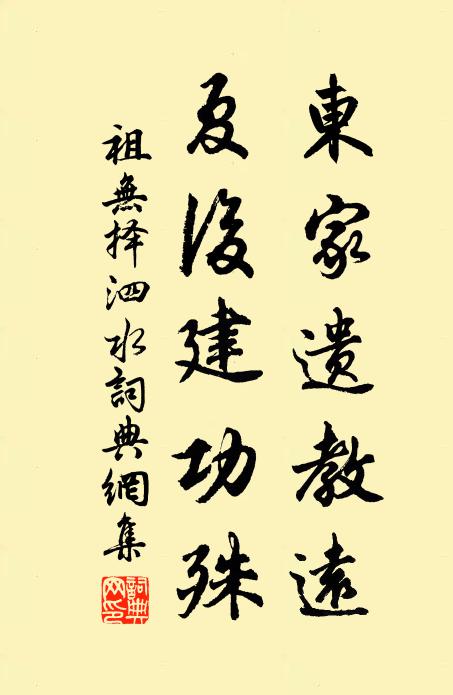 東家遺教遠
夏後建功殊
祖無择泗水詞典網集
詞典网印